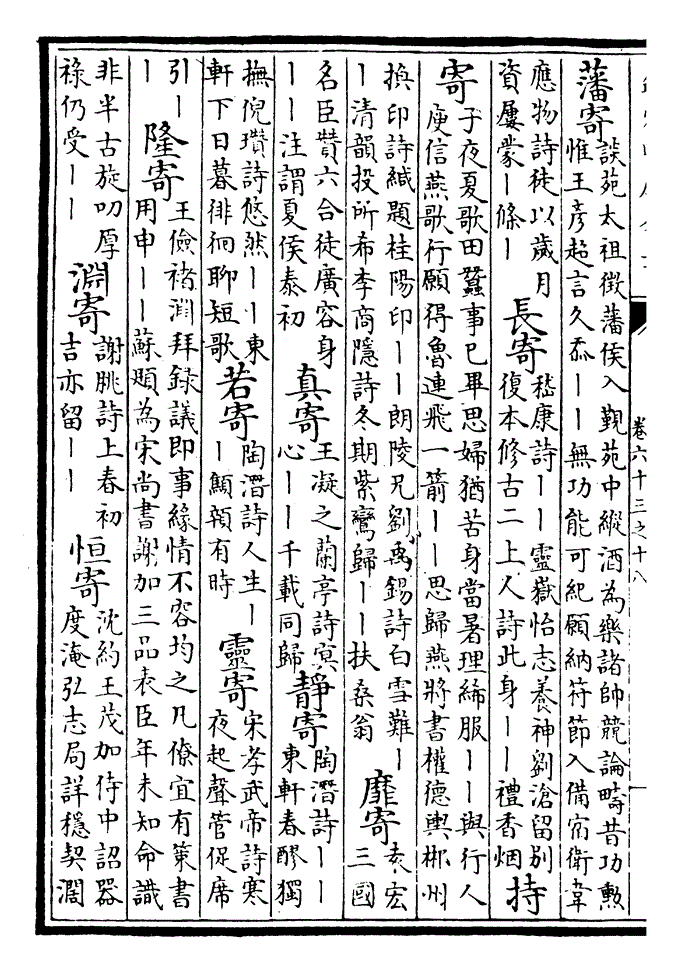 卷六十三之十八
藩寄
談苑太祖徵藩侯入覲苑中縱酒為樂諸帥競論疇昔功勲
惟王彦超言久忝丨丨無功能可紀願納符節入備宿衛韋
應物詩徒以歲月
資屢蒙丨條丨
長寄
嵇康詩丨丨靈嶽怡志養神劉滄留別
復本修古二上人詩此身丨丨禮香烟
持
寄
子夜夏歌田蠶事已畢思婦猶苦身當暑理絺服丨丨與行人
庾信燕歌行願得魯連飛一箭丨丨思歸燕將書權德輿郴州
換印詩緘題桂陽印丨丨朗陵兄劉禹錫詩白雪難丨
丨清韻投所希李商隱詩冬期紫鸞歸丨丨扶桑翁
靡寄
袁宏
三國
名臣贊六合徒廣容身
丨丨注謂夏侯泰初
真寄
王凝之蘭亭詩冥
心丨丨千載同歸
静寄
陶潛詩丨丨
東軒春醪獨
撫倪瓚詩悠然丨丨東
軒下日暮徘徊聊短歌
若寄
陶潛詩人生丨
丨顦顇有時
靈寄
宋孝武帝詩寒
夜起聲管促席
引丨
丨
隆寄
王儉褚淵拜錄議即事緣情不容均之凡僚宜有策書
用申丨丨蘇頲為宋尚書謝加三品表臣年未知命識
非半古旋叨厚
祿仍受丨丨
淵寄
謝朓詩上春初
吉亦留丨丨
恒寄
沈約王茂加侍中詔器
度淹弘志局詳穩契濶